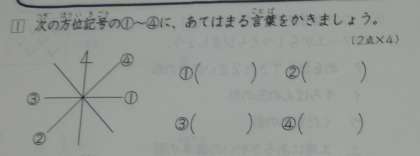 1 次の方位記号の①〜④に、あてはまる言葉をかきましょう。
(2点×4)
④
③ ①
②
①( ) ②( )
③( ) ④( )